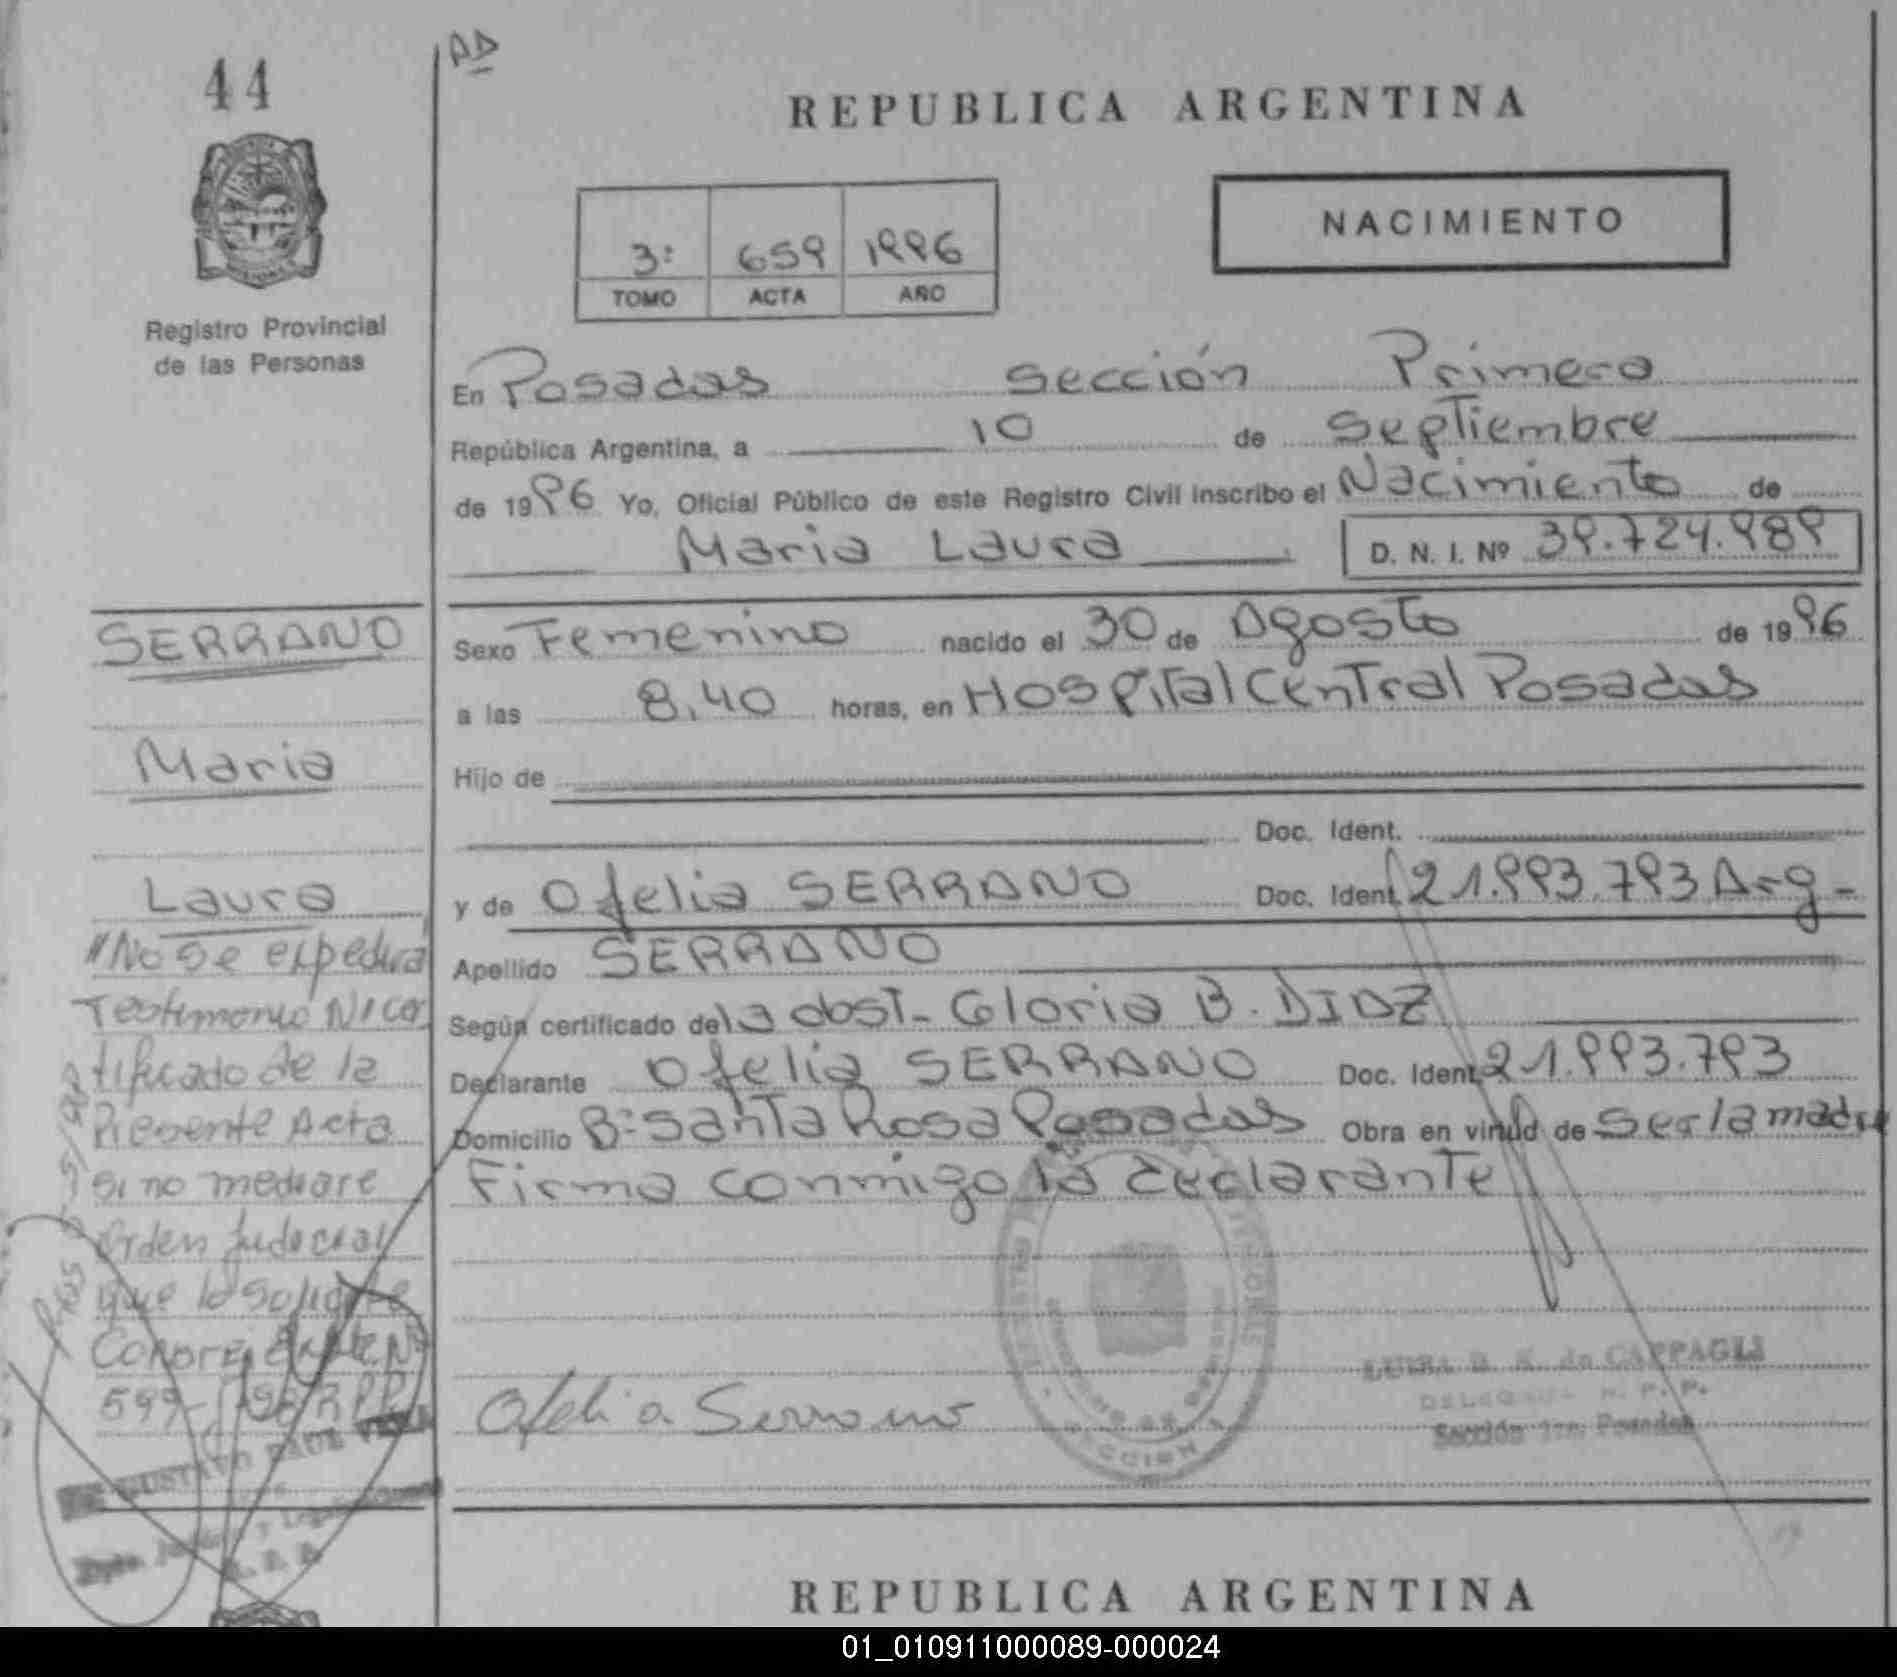 44
AD
REPUBLICA ARGENTINA
Registro Provincial
de las Personas
3: 659 1996
TOMO ACTA AÑO
NACIMIENTO
En Posadas sección Primera
República Argentina, a 10 de Septiembre
de 1996 Yo, Oficial Público de este Registro Civil inscribo el Nacimiento de
Maria Laura D. N. I. Nº 39.724.989
SERRANO
Maria
Laura
"No se expedira
Testimonio Ni cer
tificado de la
Presente Acta
si no mediare
Orden Judicial
que lo solicite
599-
Sexo Femenino nacido el 30 de Agosto de 1996
a las 8,40 horas, en Hospital Central Posadas
Hijo de
Doc. Ident.
y de Ofelia SERRANO Doc. Ident. 21.993.793 Arg-
Apellido SERRANO
Según certificado de la obst- Gloria B. DIAZ
Declarante Ofelia SERRANO Doc. Ident. 21.993.793
Domicilio Bº Santa Rosa Posadas Obra en virtud de ser la madre
Firma conmigo la declarante
Ofelia Serrano
LUISA de CAPPAGLI
Sección 1ra. Posadas
REPUBLICA ARGENTINA
01_010911000089-000024